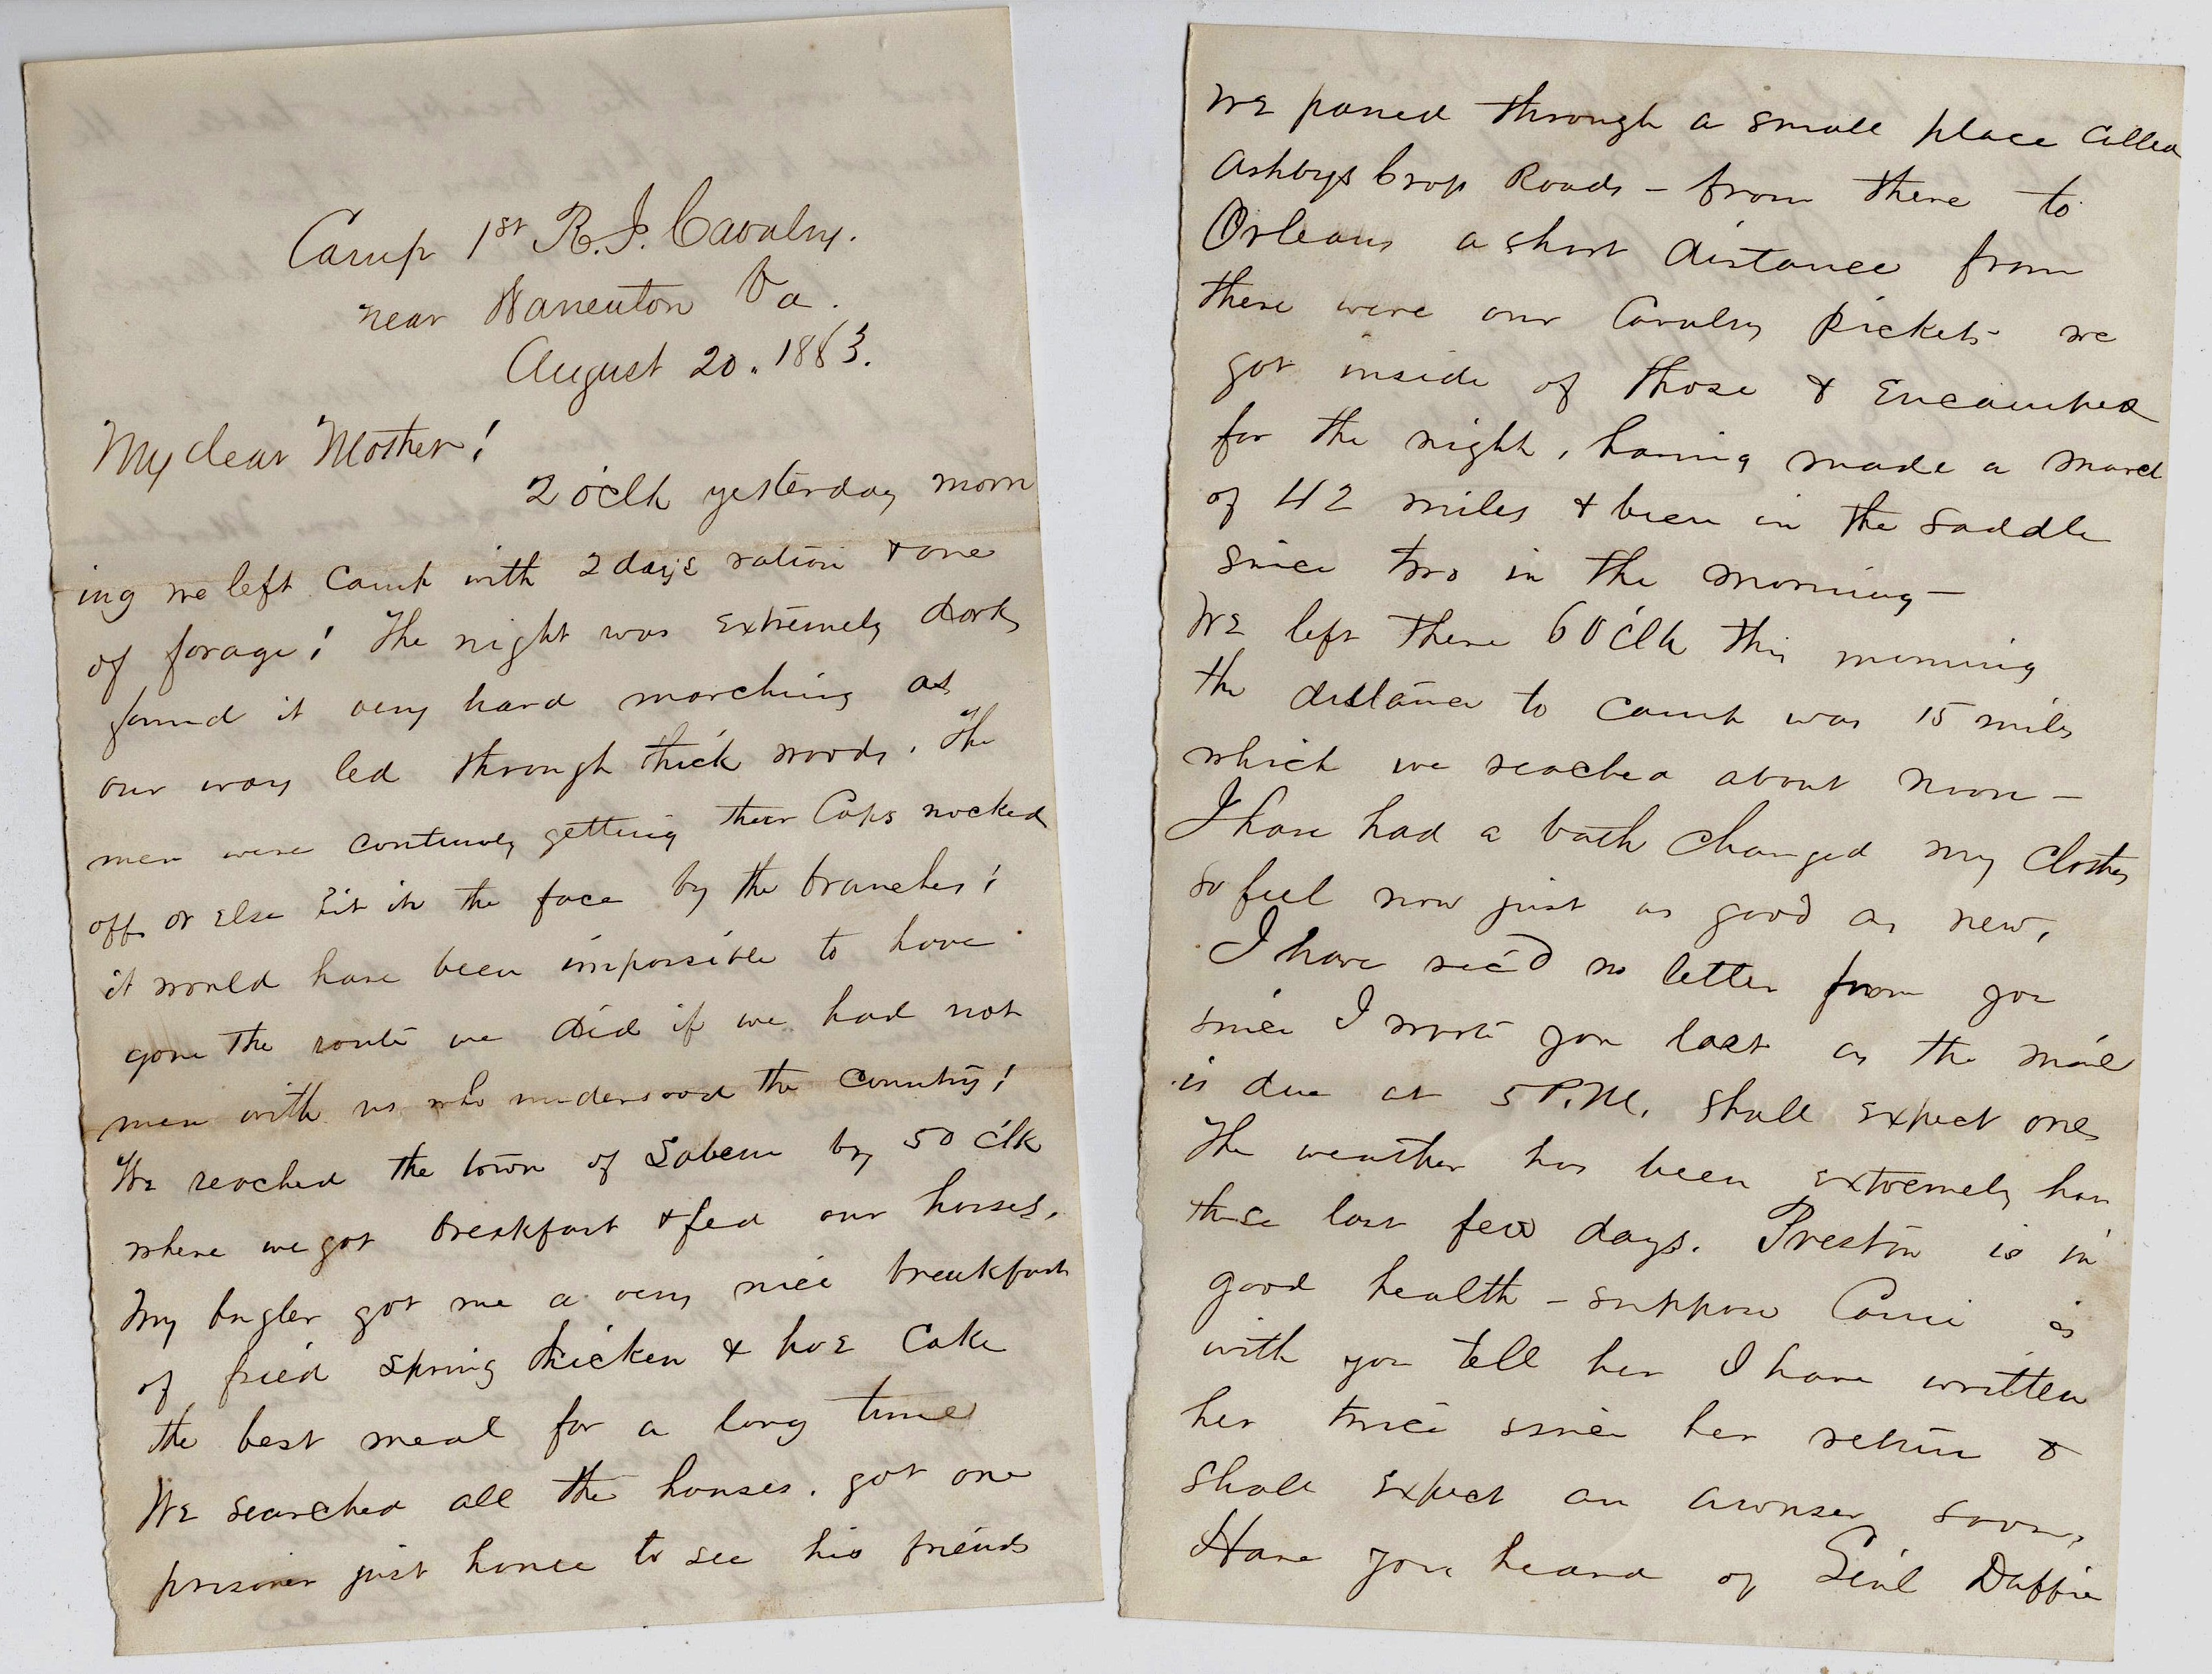 Camp 1st R.I. Cavalry.
near Warrenton Va.
August 20. 1863.
My dear Mother!
2 o'clk yesterday morn
ing we left Camp with 2 days ration & one
of forage! The night was extremely dark
found it very hard marching as
our way led through thick woods. The
men were continuly getting their Caps nocked
off or else hit in the face by the branches!
it would have been impossible to have
gone the route we did if we had not
men with us who understood the country!
We reached the town of Salem by 5 O'clk
where we got breakfast & fed our horses.
My bugler got me a very nice breakfast
of fried spring chicken & hoe Cake
the best meal for a long time
We searched all the houses. got one
prisoner just home to see his friends
We passed through a small place Called
Ashbys Cross Roads - from there to
Orleans a short distance from
there were our Cavalry pickets - we
got inside of those & Encamped
for the night, having made a march
of 42 miles & been in the saddle
since two in the morning -
We left there 6 O'Clk this morning
the distance to camp was 15 miles
which we reached about noon -
I have had a bath changed my Clothes
so feel now just as good as new.
I have rec'd no letter from you
since I wrote you last as the mail
is due at 5 P.M. shall expect one
The weather has been extremely hot
these last few days. Preston is in
good health - suppose Carrie is
with you tell her I have written
her twice since her return &
shall expect an awnser soon.
Have you heard of Genl Duffie